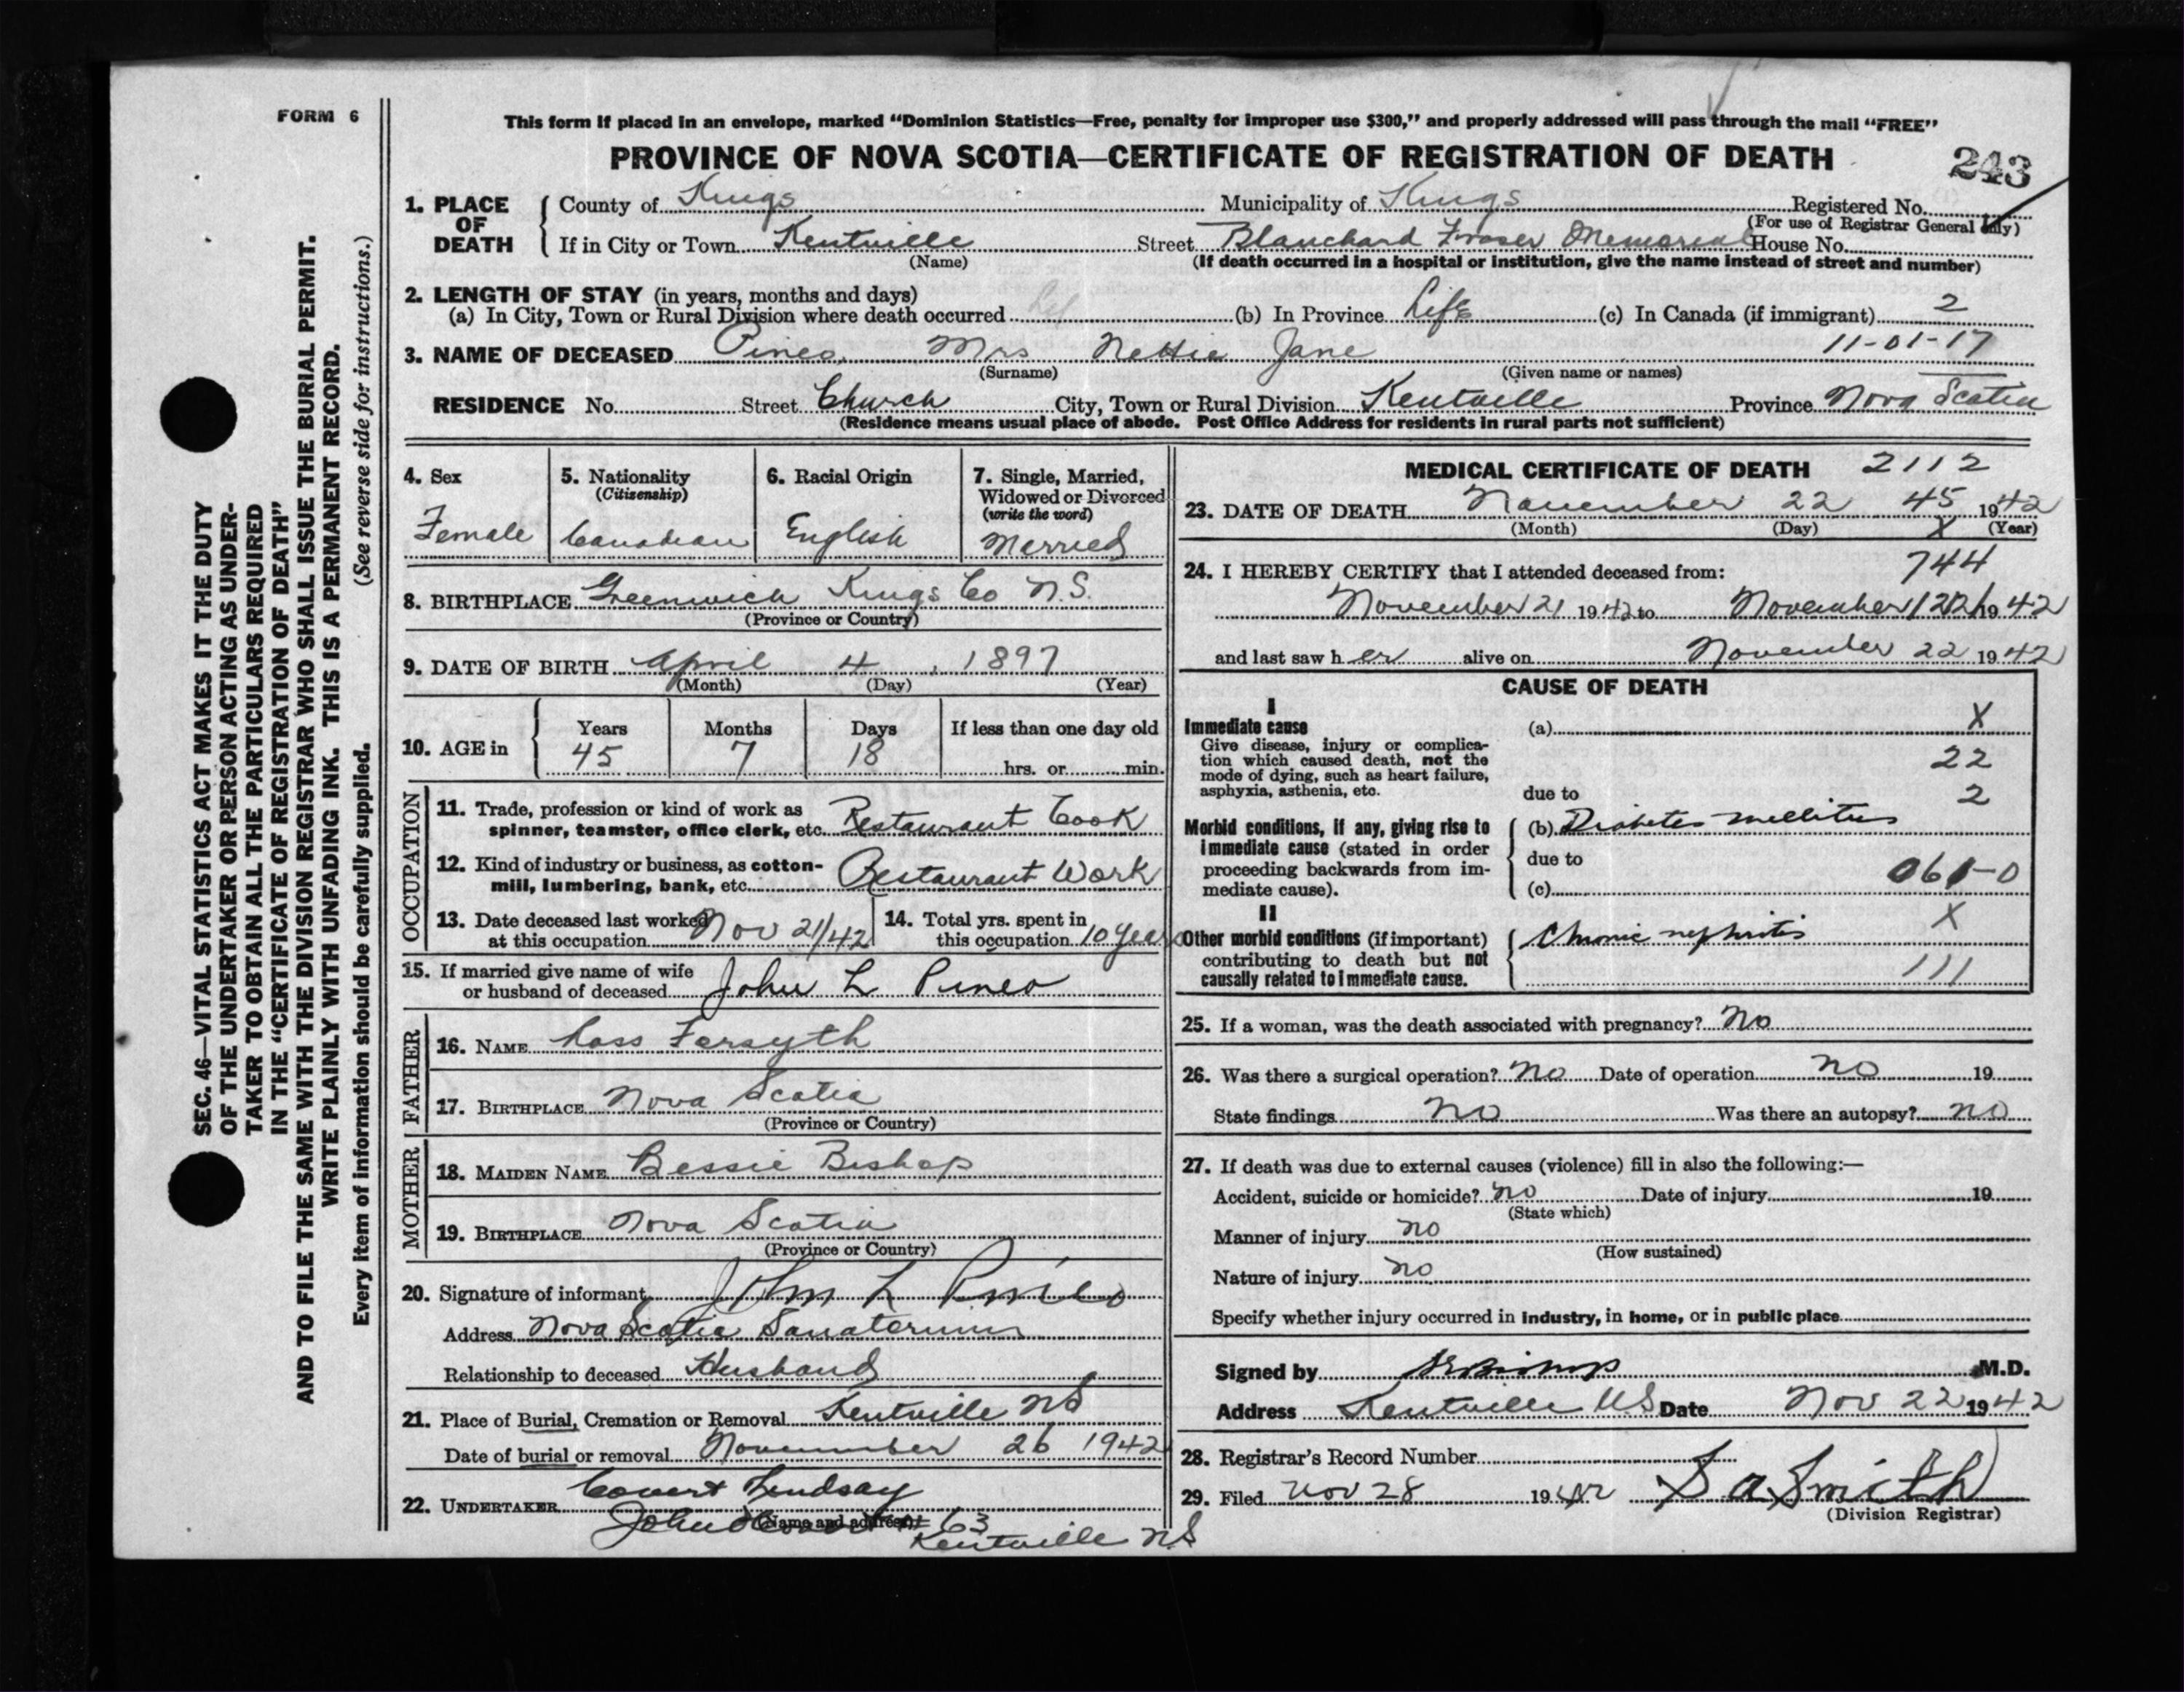 FORM 6
This form if placed in an envelope, marked "Dominion Statistics—Free, penalty for improper use $300," and properly addressed will pass through the mail "FREE"
PROVINCE OF NOVA SCOTIA—CERTIFICATE OF REGISTRATION OF DEATH
243
1. PLACE OF DEATH County of Kings Municipality of Kings Registered No.
(For use of Registrar General only)
If in City or Town Kentville Street Blanchard Fraser Memorial House No.
(Name) (If death occurred in a hospital or institution, give the name instead of street and number)
2. LENGTH OF STAY (in years, months and days)
(a) In City, Town or Rural Division where death occurred (b) In Province Life (c) In Canada (if immigrant) 2
3. NAME OF DECEASED Pineo Mrs Nettie Jane 11-01-17
(Surname) (Given name or names)
RESIDENCE No. Street Church City, Town or Rural Division Kentville Province Nova Scotia
(Residence means usual place of abode. Post Office Address for residents in rural parts not sufficient)
4. Sex
Female
5. Nationality
(Citizenship)
Canadian
6. Racial Origin
English
7. Single, Married,
Widowed or Divorced
(write the word)
Married
8. BIRTHPLACE Greenwich Kings Co N.S.
(Province or Country)
9. DATE OF BIRTH April 4, 1897
(Month) (Day) (Year)
10. AGE in Years Months Days If less than one day old
45 7 18 hrs. or min.
OCCUPATION
11. Trade, profession or kind of work as
spinner, teamster, office clerk, etc. Restaurant Cook
12. Kind of industry or business, as cotton-
mill, lumbering, bank, etc. Restaurant Work
13. Date deceased last worked
at this occupation Nov 21/42
14. Total yrs. spent in
this occupation 10 years
15. If married give name of wife
or husband of deceased John L Pineo
FATHER
16. NAME Forsyth
17. BIRTHPLACE Nova Scotia
(Province or Country)
MOTHER
18. MAIDEN NAME Bessie Bishop
19. BIRTHPLACE Nova Scotia
(Province or Country)
20. Signature of informant John L Pineo
Address Nova Scotia Sanatorium
Relationship to deceased Husband
21. Place of Burial, Cremation or Removal Kentville NS
Date of burial or removal November 26 1942
22. UNDERTAKER Covert Lindsay
(Name and address)
John 63
Kentville N.S
MEDICAL CERTIFICATE OF DEATH 2112
23. DATE OF DEATH November 22 45 1942
(Month) (Day) X (Year)
744
24. I HEREBY CERTIFY that I attended deceased from:
November 21 1942 to November 22 1942
and last saw her alive on November 22 1942
CAUSE OF DEATH
I
Immediate cause (a) X
Give disease, injury or complica-
tion which caused death, not the
mode of dying, such as heart failure,
asphyxia, asthenia, etc.
22
due to 2
Morbid conditions, if any, giving rise to
immediate cause (stated in order
proceeding backwards from im-
mediate cause).
(b) Diabetes mellitus
due to
(c) 061-0
II
Other morbid conditions (if important)
contributing to death but not
causally related to immediate cause.
Chronic nephritis X
111
25. If a woman, was the death associated with pregnancy? No
26. Was there a surgical operation? No Date of operation no 19
State findings no Was there an autopsy? no
27. If death was due to external causes (violence) fill in also the following:—
Accident, suicide or homicide? no Date of injury 19
(State which)
Manner of injury no
(How sustained)
Nature of injury no
Specify whether injury occurred in industry, in home, or in public place
Signed by Bishop M.D.
Address Kentville NS Date Nov 22 1942
28. Registrar's Record Number
29. Filed Nov 28 1942 S a Smith
(Division Registrar)
SEC. 46—VITAL STATISTICS ACT MAKES IT THE DUTY
OF THE UNDERTAKER OR PERSON ACTING AS UNDER-
TAKER TO OBTAIN ALL THE PARTICULARS REQUIRED
IN THE "CERTIFICATE OF REGISTRATION OF DEATH"
AND TO FILE THE SAME WITH THE DIVISION REGISTRAR WHO SHALL ISSUE THE BURIAL PERMIT.
WRITE PLAINLY WITH UNFADING INK. THIS IS A PERMANENT RECORD.
Every item of information should be carefully supplied. (See reverse side for instructions.)